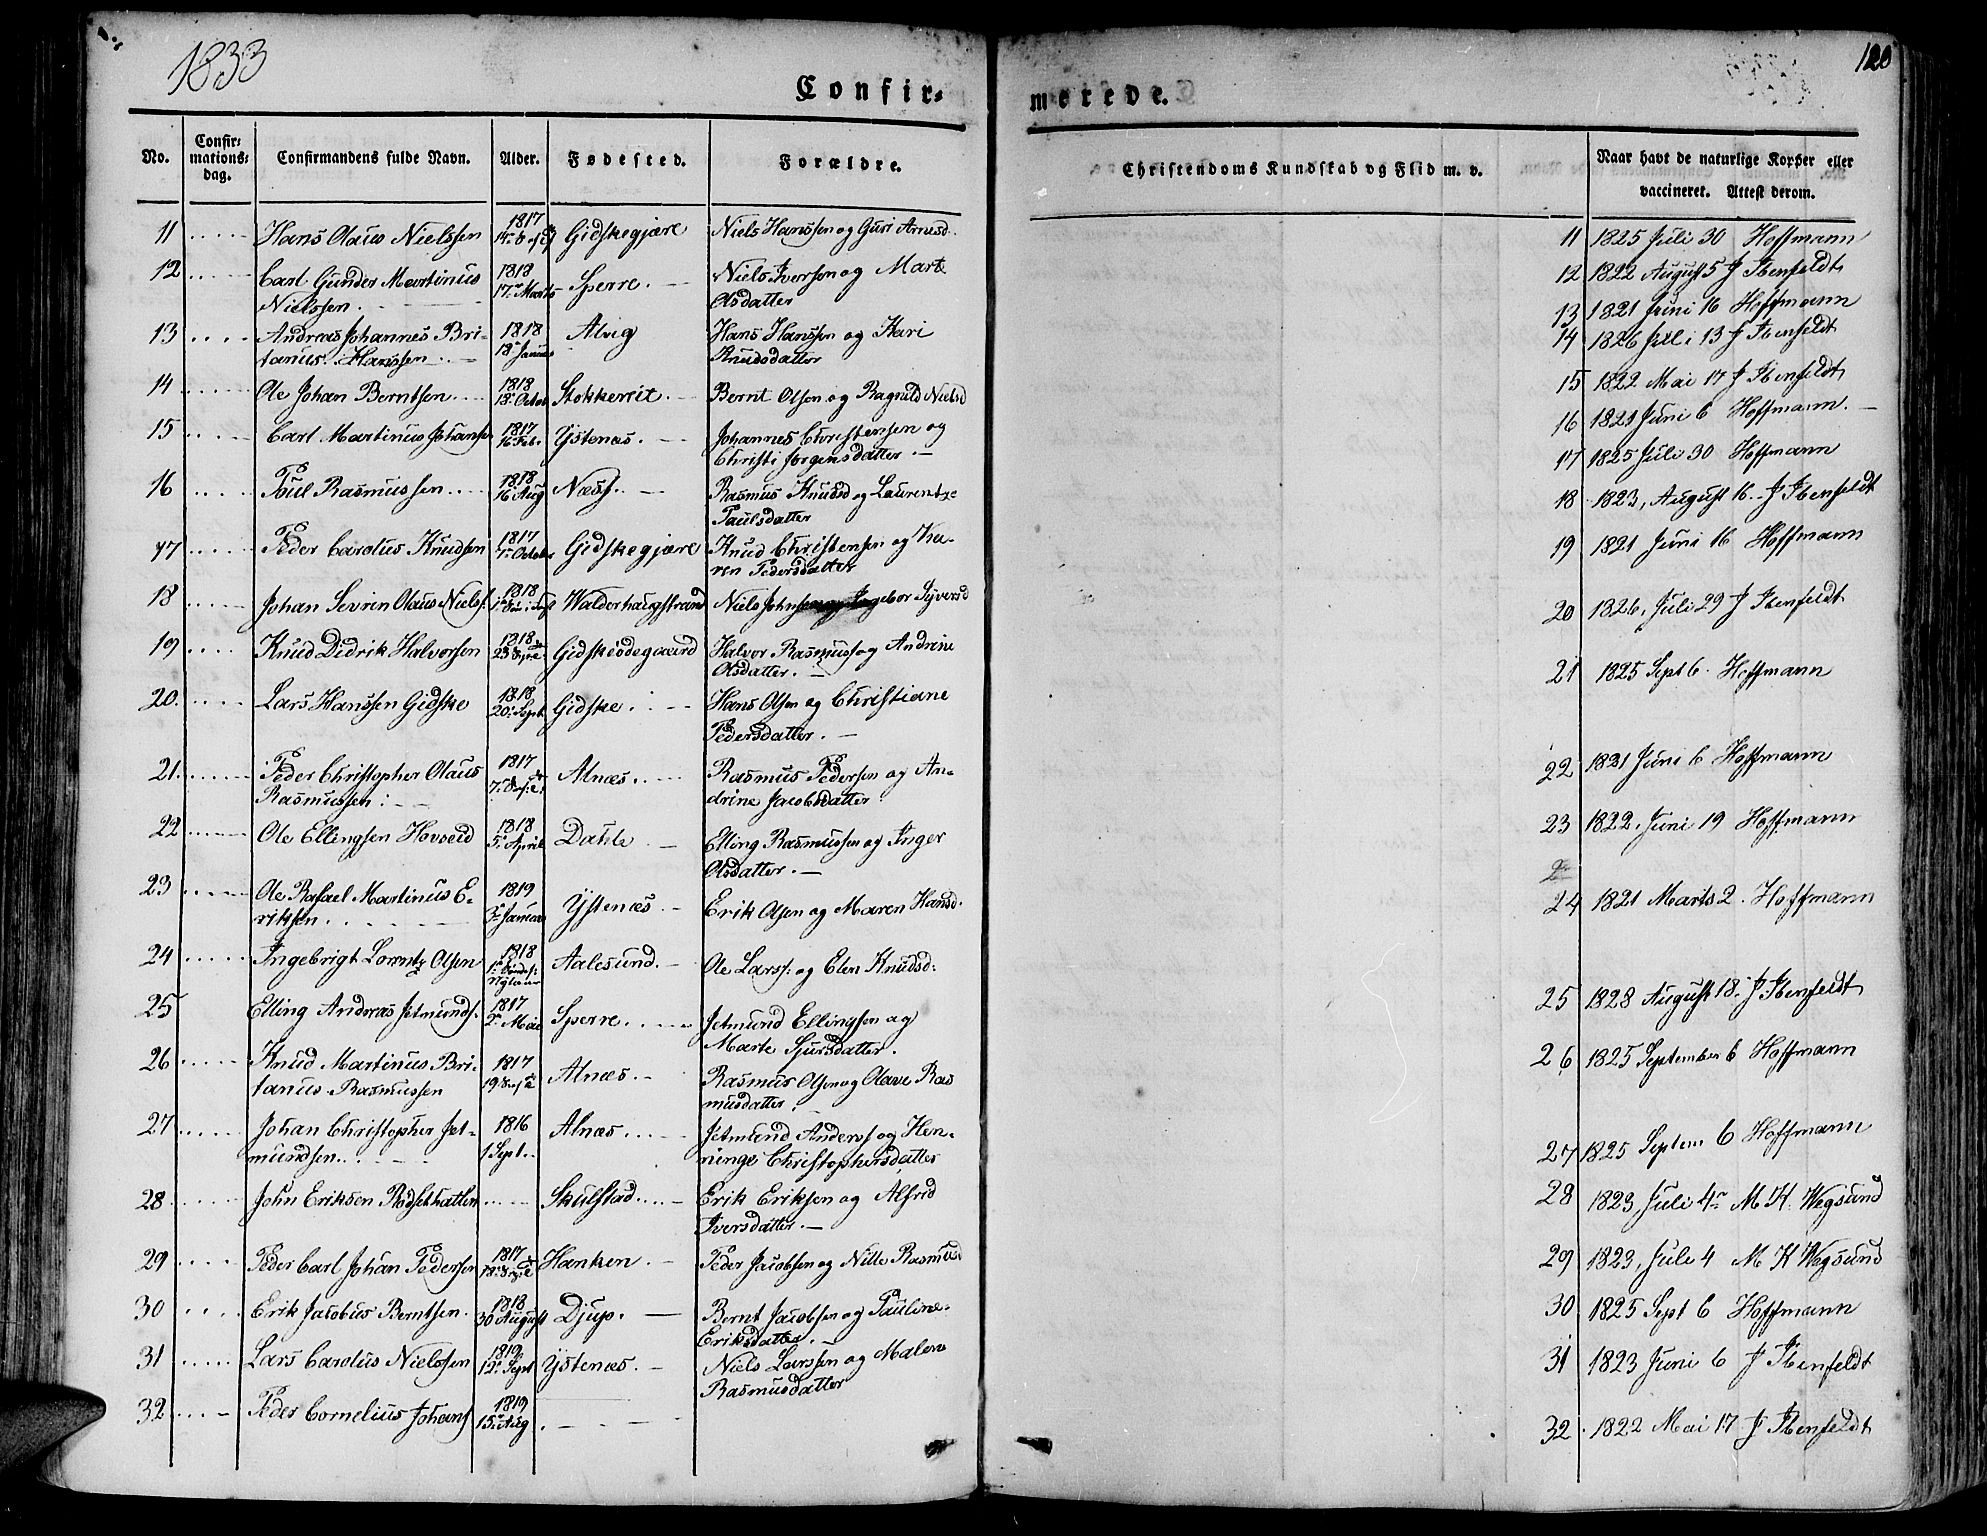 1833
120
Confir-
merede.
No.
Confir-
mations-
dag.
Confirmandens fulde Navn.
Alder.
Fødested.
Forældre.
Christendoms Kundskab og Flid m. v.
Naar havt de naturlige Kopper eller
vaccineret. Attest derom.
11 Hans Olaus Nielssen 1817 Gidskegjære Niels Hanssen og Guri Arnesd.
12 Carl Gunder Martinus 1818 Sperre. Niels Iversen og Marte
Nielssen. 17de Marts Olsdatter
13 Andreas Johannes Bri- 1818 Alvig Hans Hanssen og Kari
tanus Hanssen 18de Januar Knudsdatter
14 Ole Johan Berntsen 1818 Stokkerèit Bernt Olsen og Ragnild Nielsd
15 Carl Martinus Johansen 1817 Ystenæs. Johannes Christensen og
16 Feb. Christi Jørgensdatter.
16 Poul Rasmussen 1818 Næss. Rasmus Knudsd og Laurentze
16 Aug Paulsdatter
17 Peder Carolus Knudsen 1817 Gidskegjære Knud Christensen og Ka-
Octob ren Pedersdatter
18 Johan Severin Olaus Nielss. 1818 Walderhaugstrand Niels Johnsen og Ingebor Syversd
19 Knud Didrik Halvorsen 1818 Gidskeödegaard Halvor Rasmuss og Andrine
Olsdatter.
20. Lars Hanssen Gidske 1818 Gidske. Hans Olsen og Christiane
20de Sept Pedersdatter.
21. Peder Christopher Olaus 1817 Alnæs. Rasmus Pedersen og An-
Rasmussen: drine Jacobsdatter
22 Ole Ellingsen Hovseid 1818 Dahle Elling Rasmussen og Inger
5. April Olsdatter.
23 Ole Rafael Martinus E- 1819 Ystenæs Erik Olsen og Maren Hansd.
riksen. 3. Januar
24 Ingebrigt Lorentz Olsen 1818 Aalesund. Ole Larss: og Elen Knudsd:
Nytaar
25 Elling Andreas Jetmunds. 1817 Sperre. Jetmund Ellingsen og
2. Mai Marte Sjursdatter.
26 Knud Martinus Bri- 1817 Alnæs. Rasmus Olsen og Olave Ras
tanus Rasmussen musdatter.
27 Johan Christopher Jet- 1816 Alnæs. Jetmund Anderss og Hen-
mundsen. 1 Sept. ninge Christophersdatter
28 John Eriksen Rødsethatlen Skulstad. Erik Eriksen og Alfrid
Iversdatter.
29 Peder Carl Johan Pedersen 1817 Hanken Peder Jacobsen og Nille Rasmusd
30 Erik Jacobus Berntsen. 1818 Djup. Bernt Jacobsen og Pauline
30 August Eriksdatter.
31 Lars Carolus Nielssen 1819 Ystenæs. Niels Larssen og Malene
12. Sept Rasmusdatter
32 Peder Cornelius Johans 1819
15. Aug
11 1825 Juli 30 Hoffmann
12 1822 August 5 J Ibenfeldt
13 1821 Juni 16 Hoffmann
14 1826 Juli 13 J Ibenfeldt
15 1822 Mai 17 J Ibenfeldt
16 1821 Juni 6 Hoffmann.
17 1825 Juli 30 Hoffmann
18 1823, August 16. J Ibenfeldt
19 1821 Juni 16 Hoffmann
20 1826, Juli 29 J Ibenfeldt
21 1825 Sept 6. Hoffmann
22 1821 Juni 6 Hoffmann
23 1822, Juni 19 Hoffmann
24 1821 Marts 2. Hoffmann
25 1828 August 18. J Ibenfeldt
26 1825 September 6 Hoffmann
27 1825 Septem 6 Hoffmann
28 1823, Juli 4de M K. Wegsund
29 1823, Juli 4 M K Wegsund
30 1825 Sept 6 Hoffmann
31 1823 Juni 6 J Ibenfeldt
32. 1822 Mai 17 J Ibenfeldt